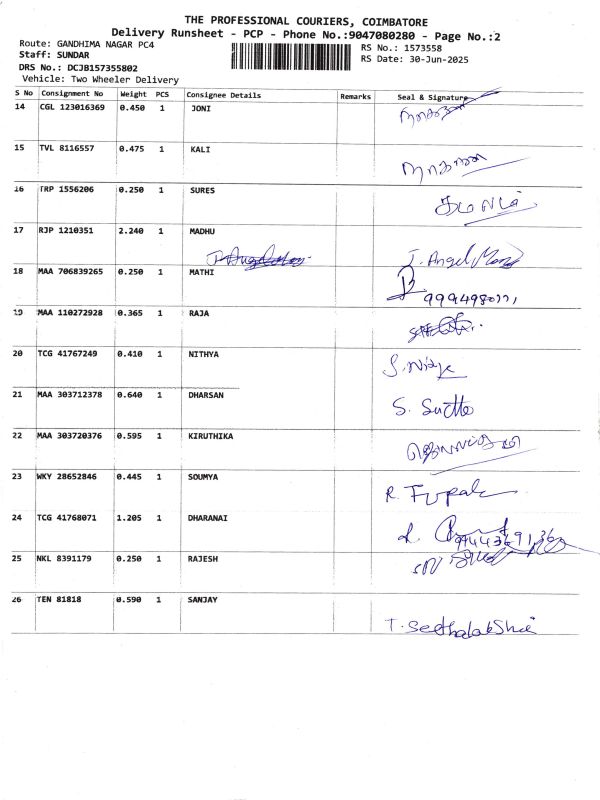 THE PROFESSIONAL COURIERS, COIMBATORE
Delivery Runsheet - PCP - Phone No.:9047080280 - Page No.:2
Route: GANDHIMA NAGAR PC4
Staff: SUNDAR
DRS No.: DCJB157355802
Vehicle: Two Wheeler Delivery
RS No.: 1573558
RS Date: 30-Jun-2025
S No Consignment No Weight PCS Consignee Details Remarks Seal & Signature
14 CGL 123016369 0.450 1 JONI
15 TVL 8116557 0.475 1 KALI
16 TRP 1556206 0.250 1 SURES
17 RJP 1210351 2.240 1 MADHU
J. Angel
18 MAA 706839265 0.250 1 MATHI
19 MAA 110272928 0.365 1 RAJA
20 TCG 41767249 0.410 1 NITHYA
21 MAA 303712378 0.640 1 DHARSAN
S.
22 MAA 303720376 0.595 1 KIRUTHIKA
23 WKY 28652846 0.445 1 SOUMYA
R.
24 TCG 41768071 1.205 1 DHARANAI
25 NKL 8391179 0.250 1 RAJESH
26 TEN 81818 0.590 1 SANJAY
T. Seethalakshmi